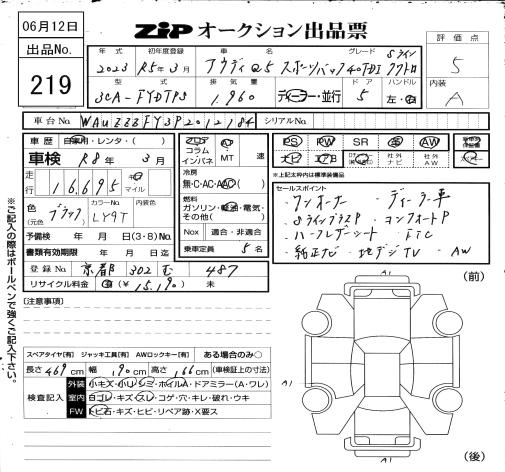 06月12日
ZiP オークション出品票
出品No.
219
年式 初年度登録 車名 グレード
2023 R5年3月 アウディQ5 スポーツバック40TDI Sライン クワトロ
型式 排気量 ドア ハンドル
3CA-FYDTPS 1,960 ディーラー・並行 5 左・右
評価点
5
内装
A
車台No. WAUZZZFY3P2012184 シリアルNo.
車歴 自家用・レンタ・( )
車検 R8年3月
走行 16,695 km マイル
色(元色) ブラック カラーNo. LY9T 内装色
予備検 年 月 日(3・8)No.
書類有効期限 年 月 日迄
登録No. 京都 302 487
リサイクル料金 (¥15,190) 未
コラム インパネ MT 速
冷房
無・C・AC・AAC
燃料
ガソリン・軽油・電気・その他( )
Nox 適合・非適合
乗車定員 5名
PS PW SR AW
ナビ エアB 社外ナビ 社外AW
※上記太枠内は標準装備品
セールスポイント
・ワンオーナー ・ディーラー車
・SラインプラスP ・コンフォートP
・ハーフレザーシート ・ETC
・純正ナビ ・地デジTV ・AW
※ご記入の際はボールペンで強くご記入下さい。
[注意事項]
(前)
A1
A1
A1
(後)
スペアタイヤ[有] ジャッキ工具[有] AWロックキー[有] ある場合のみ○
長さ469cm 幅190cm 高さ166cm (車検証上の寸法)
検査記入
外装 小キズ・小リンジミ・ホイルA・ドアミラー(A・ワレ)
室内 ヨゴレ・キズ・スレ・コゲ・穴・キレ・破れ・ウキ
FW トビ石・キズ・ヒビ・リペア跡・X要ス